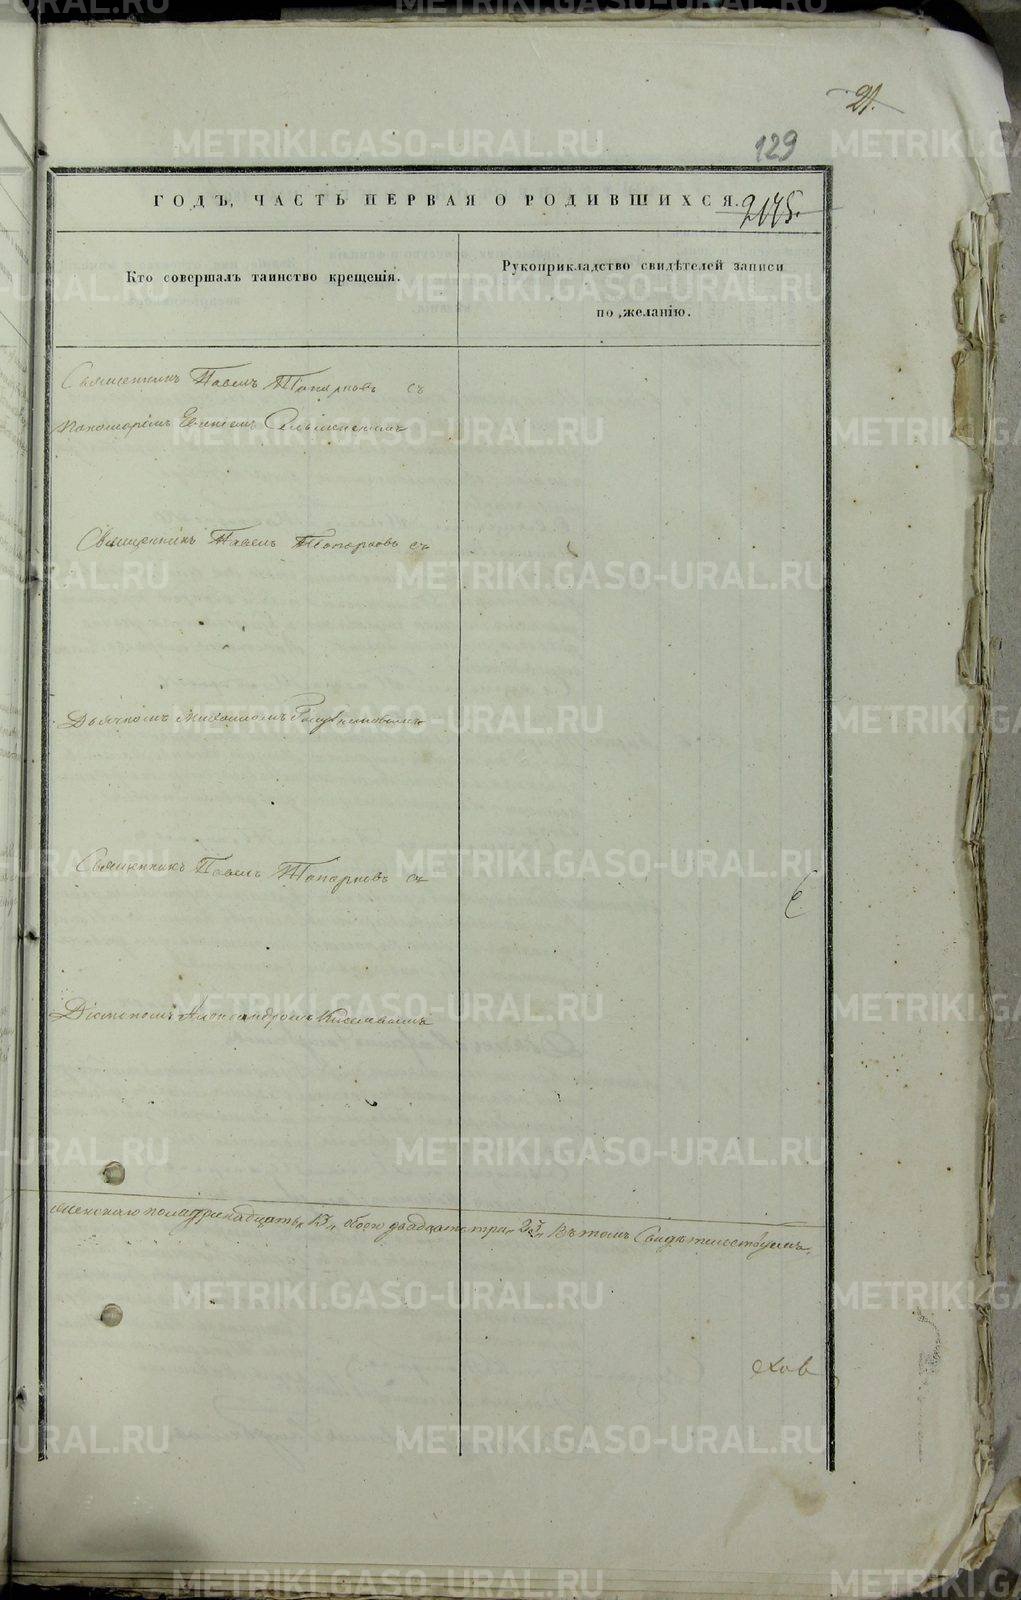 21.
129
ГОДЪ, ЧАСТЬ ПЕРВАЯ О РОДИВШИХСЯ.
2175.
Кто совершалъ таинство крещенія.
Рукоприкладство свидѣтелей записи
по желанію.
Священникъ Павелъ Топорковъ съ
пономаремъ
Священникъ Павелъ Топорковъ съ
Дьячкомъ Михаиломъ
Священникъ Павелъ Топорковъ съ
Діакономъ Александромъ Киселевымъ
женскаго пола тринадцать 13, обоего двадцать три 23, Въ томъ Свидѣтельствуемъ.
METRIKI.GASO-URAL.RU